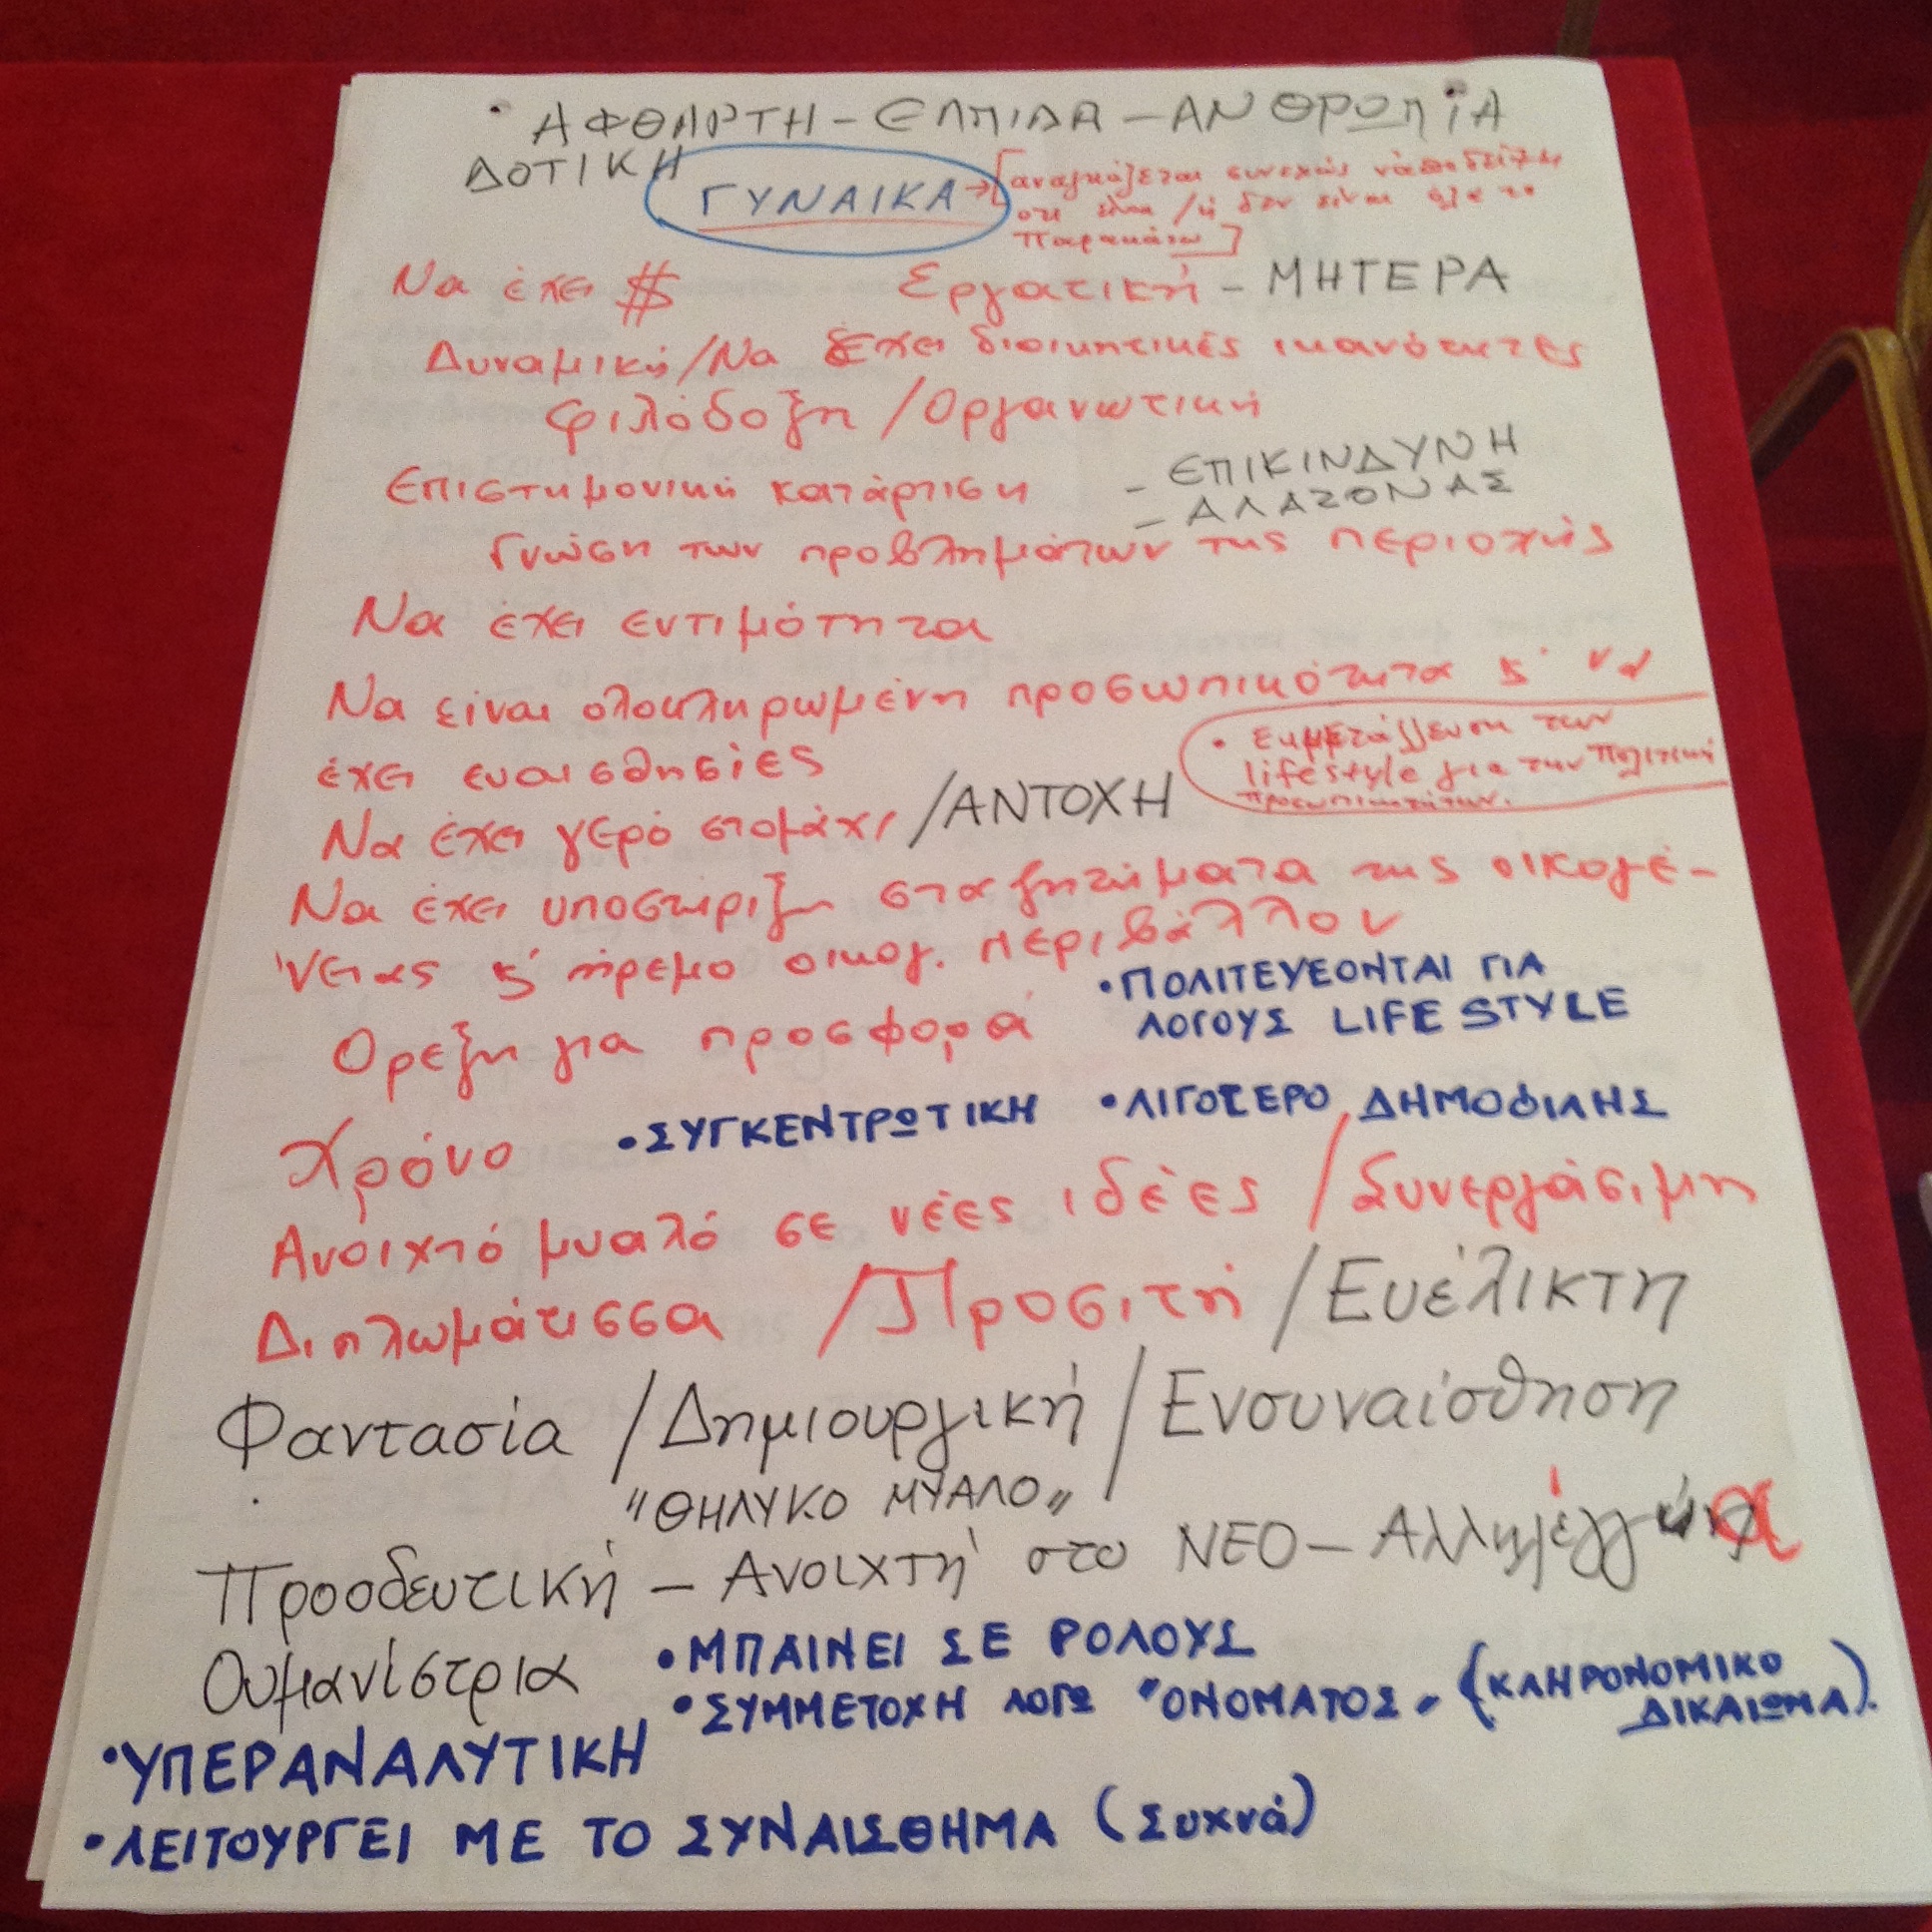 • ΑΦΘΑΡΤΗ – ΕΛΠΙΔΑ – ΑΝΘΡΩΠΙΑ
ΔΟΤΙΚΗ
ΓΥΝΑΙΚΑ → [αναγκάζεται συνεχώς να αποδείξει
οτι είναι / ή δεν είναι όλα τα
παρακάτω]
Να έχει $ Εργατική – ΜΗΤΕΡΑ
Δυναμική / Να έχει διοικητικές ικανότητες
Φιλόδοξη / Οργανωτική
Επιστημονική κατάρτιση – ΕΠΙΚΙΝΔΥΝΗ
– ΑΛΑΖΟΝΑΣ
Γνώση των προβλημάτων της περιοχής
Να έχει εντιμότητα
Να είναι ολοκληρωμένη προσωπικότητα ϗ να
έχει ευαισθησίες
• Εκμετάλλευση των
lifestyle για την πολιτική
προσωπικοτήτων.
Να έχει γερό στομάχι / ΑΝΤΟΧΗ
Να έχει υποστήριξη στα ζητήματα της οικογέ-
νειας ϗ ήρεμο οικογ. περιβάλλον
• ΠΟΛΙΤΕΥΕΟΝΤΑΙ ΓΙΑ
ΛΟΓΟΥΣ LIFE STYLE
Ορεξη για προσφορά
Χρόνο • ΣΥΓΚΕΝΤΡΩΤΙΚΗ • ΛΙΓΟΤΕΡΟ ΔΗΜΟΦΙΛΗΣ
Ανοιχτό μυαλό σε νέες ιδέες / Συνεργάσιμη
Διπλωμάτισσα / Προσιτή / Ευέλικτη
Φαντασία / Δημιουργική / Ενσυναίσθηση
"ΘΗΛΥΚΟ ΜΥΑΛΟ"
Προοδευτική – Ανοιχτή στο ΝΕΟ –
Ουμανίστρια • ΜΠΑΙΝΕΙ ΣΕ ΡΟΛΟΥΣ
• ΣΥΜΜΕΤΟΧΗ ΛΟΓΩ "ΟΝΟΜΑΤΟΣ" (ΚΛΗΡΟΝΟΜΙΚΟ
ΔΙΚΑΙΩΜΑ).
• ΥΠΕΡΑΝΑΛΥΤΙΚΗ
• ΛΕΙΤΟΥΡΓΕΙ ΜΕ ΤΟ ΣΥΝΑΙΣΘΗΜΑ (Συχνά)